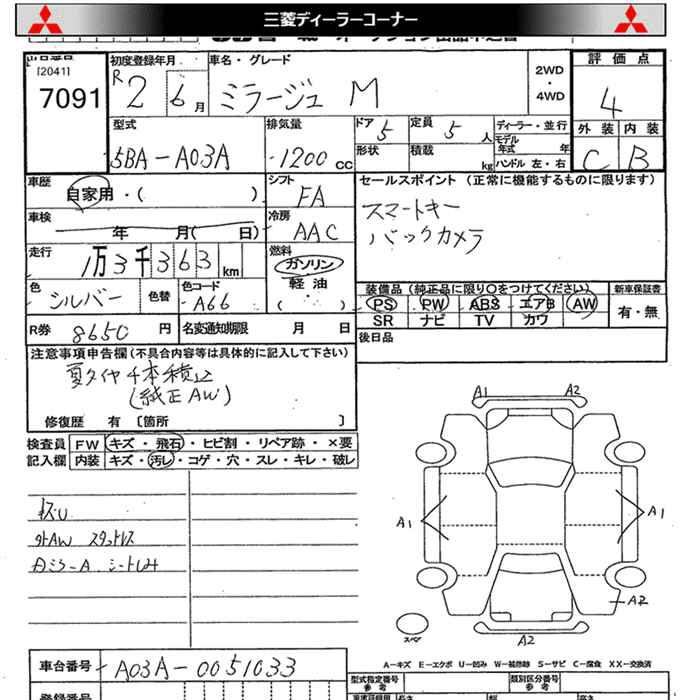 三菱ディーラーコーナー
[2041]
7091
初度登録年月
R2 6月
車名・グレード
ミラージュ M
2WD
・
4WD
評価点
4
型式
5BA-A03A
排気量
1200cc
ドア 5
定員 5人
形状
積載 kg
ディーラー・並行
モデル年式 年
ハンドル 左・右
外装 内装
C B
車歴 自家用・( )
シフト FA
セールスポイント (正常に機能するものに限ります)
スマートキー
バックカメラ
車検 年 月( 日)
冷房 AAC
走行 1万3千363km
燃料 ガソリン
軽油
( )
装備品(純正品に限り○をつけてください) 新車保証書
PS PW ABS エアB AW
SR ナビ TV カワ
有・無
色 シルバー 色替
色コード A66
R券 8650円
名変通知期限 月 日
後日品
注意事項申告欄(不具合内容等は具体的に記入して下さい)
夏タイヤ4本積込
(純正AW)
修復歴 有 [箇所 ]
検査員 FW キズ・飛石・ヒビ割・リペア跡・×要
記入欄 内装 キズ・汚レ・コゲ・穴・スレ・キレ・破レ
キズU
外AW スタットレス
内ミラーA シートしみ
A1 A2
A1 A1
A2
スペア
A2
車台番号 A03A-0051033
A−キズ E−エクボ U−凹み W−補修跡 S−サビ C−腐食 XX−交換済
型式指定番号
参考
類別区分番号
参考